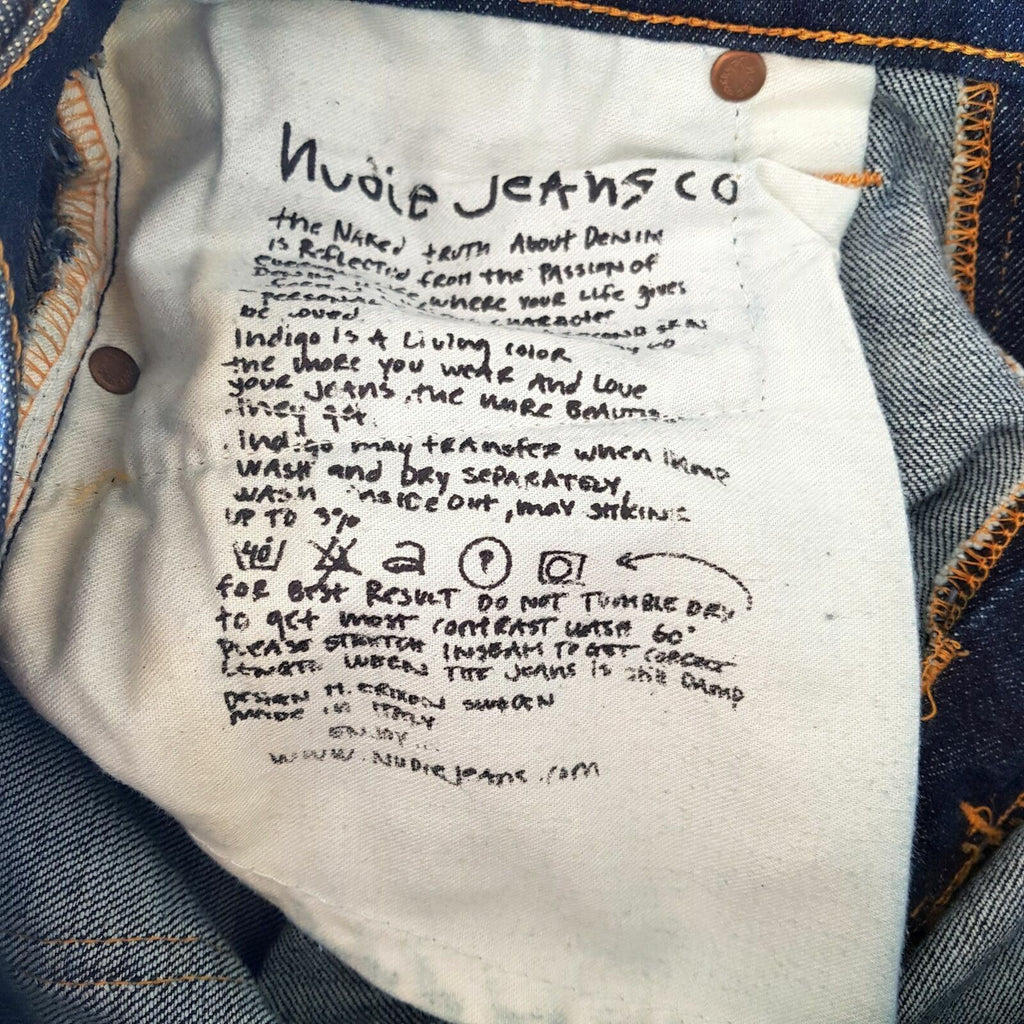 nudie jeans co
the Naked truth About Denim
is Reflected from the Passion of
where your Life gives
personal character
be loved second skin
Indigo is A Living color
the more you wear And Love
your jeans, the more
they get
Indigo may transfer when Damp
wash and Dry Separately
wash inside out, may
up to 3%
40
P
for Best Result Do not Tumble Dry
to get most contrast wash 60°
Please stretch Inseam to get correct
Length when the jeans is still Damp
Design M. Erixson Sweden
Made in Italy
Enjoy...
www.nudiejeans.com